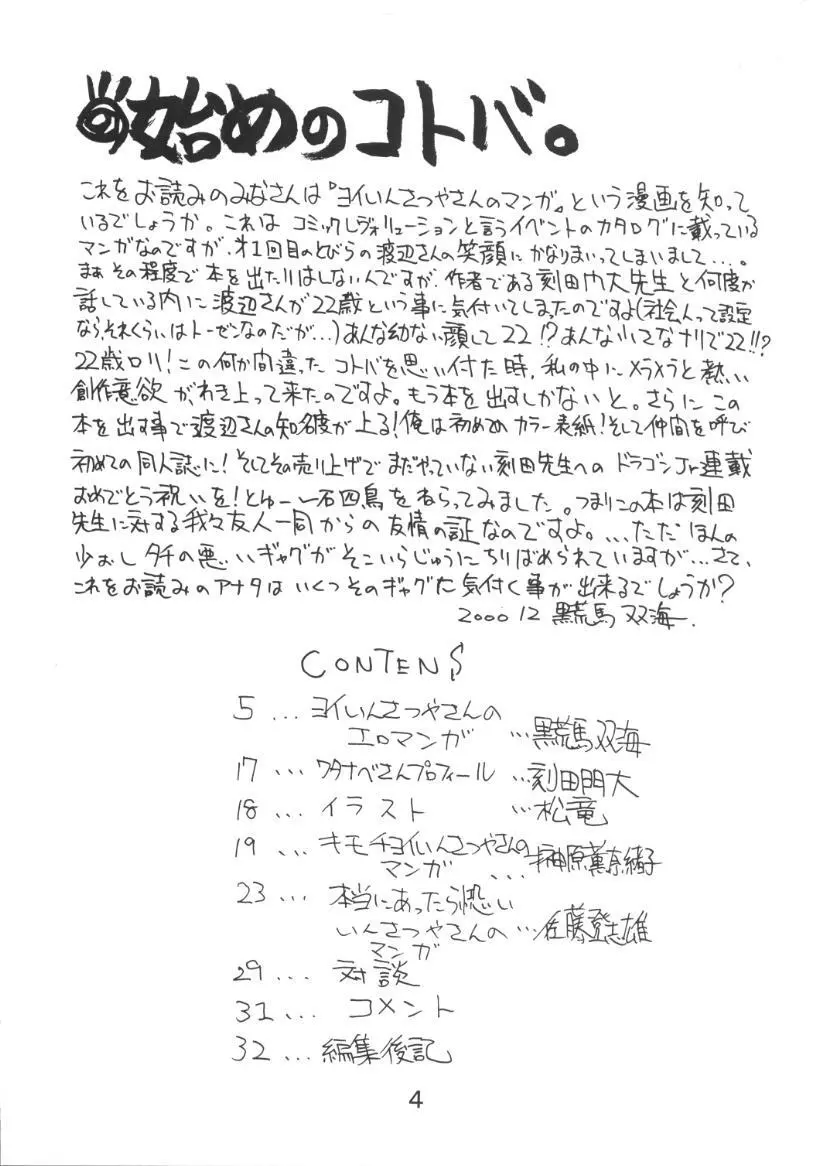 の始めのコトバ。
これをお読みのみなさんは『ヨイいんさつやさんのマンガ』という漫画を知って
いるでしょうか。これは コミックレヴォリューションと言うイベントのカタログに載っている
マンガなのですが、オ1回目のとびらの渡辺さんの笑顔に かなりまいってしまいまして…。
まぁ その程度で本を出たりはしないんですが、作者である刻田門大先生と何度か
話している内に渡辺さんが22歳という事に気付いてしまったのですよ(社会人って設定
なら、それくらいはトーゼンなのだが…)あんな幼ない顔して22!?あんな小さなナリで22!!?
22歳ロリ!この何か間違ったコトバを思い付た時、私の中にメラメラと熱い
創作意欲がわき上って来たのですよ。もう本を出すしかないと。さらにこの
本を出す事で渡辺さんの知名度が上る!俺は初めてのカラー表紙!そして仲間を呼び
初めての同人誌に!そしてその売り上げでまだやっていない刻田先生へのドラゴンJr連載
おめでとう祝いを!とゆー一石四鳥をねらってみました。つまりこの本は刻田
先生に対する我々友人一同からの友情の証なのですよ。…ただほんの
少おしタチの悪いギャグがそこいらじゅうにちりばめられていますが…さて、
これをお読みのアナタはいくつそのギャグに気付く事が出来るでしょうか?
2000 12 黒荒馬 双海.
CONTENS
5 … ヨイいんさつやさんの
エロマンガ …黒荒馬双海
17 … ワタナベさんプロフィール …刻田門大
18 … イラスト …松竜
19 … キモチヨイいんさつやさんの
マンガ …榊原薫奈緒子
23 … 本当にあったら恐い
いんさつやさんの …佐藤登志雄
マンガ
29 … 対談
31 … コメント
32 … 編集後記
4